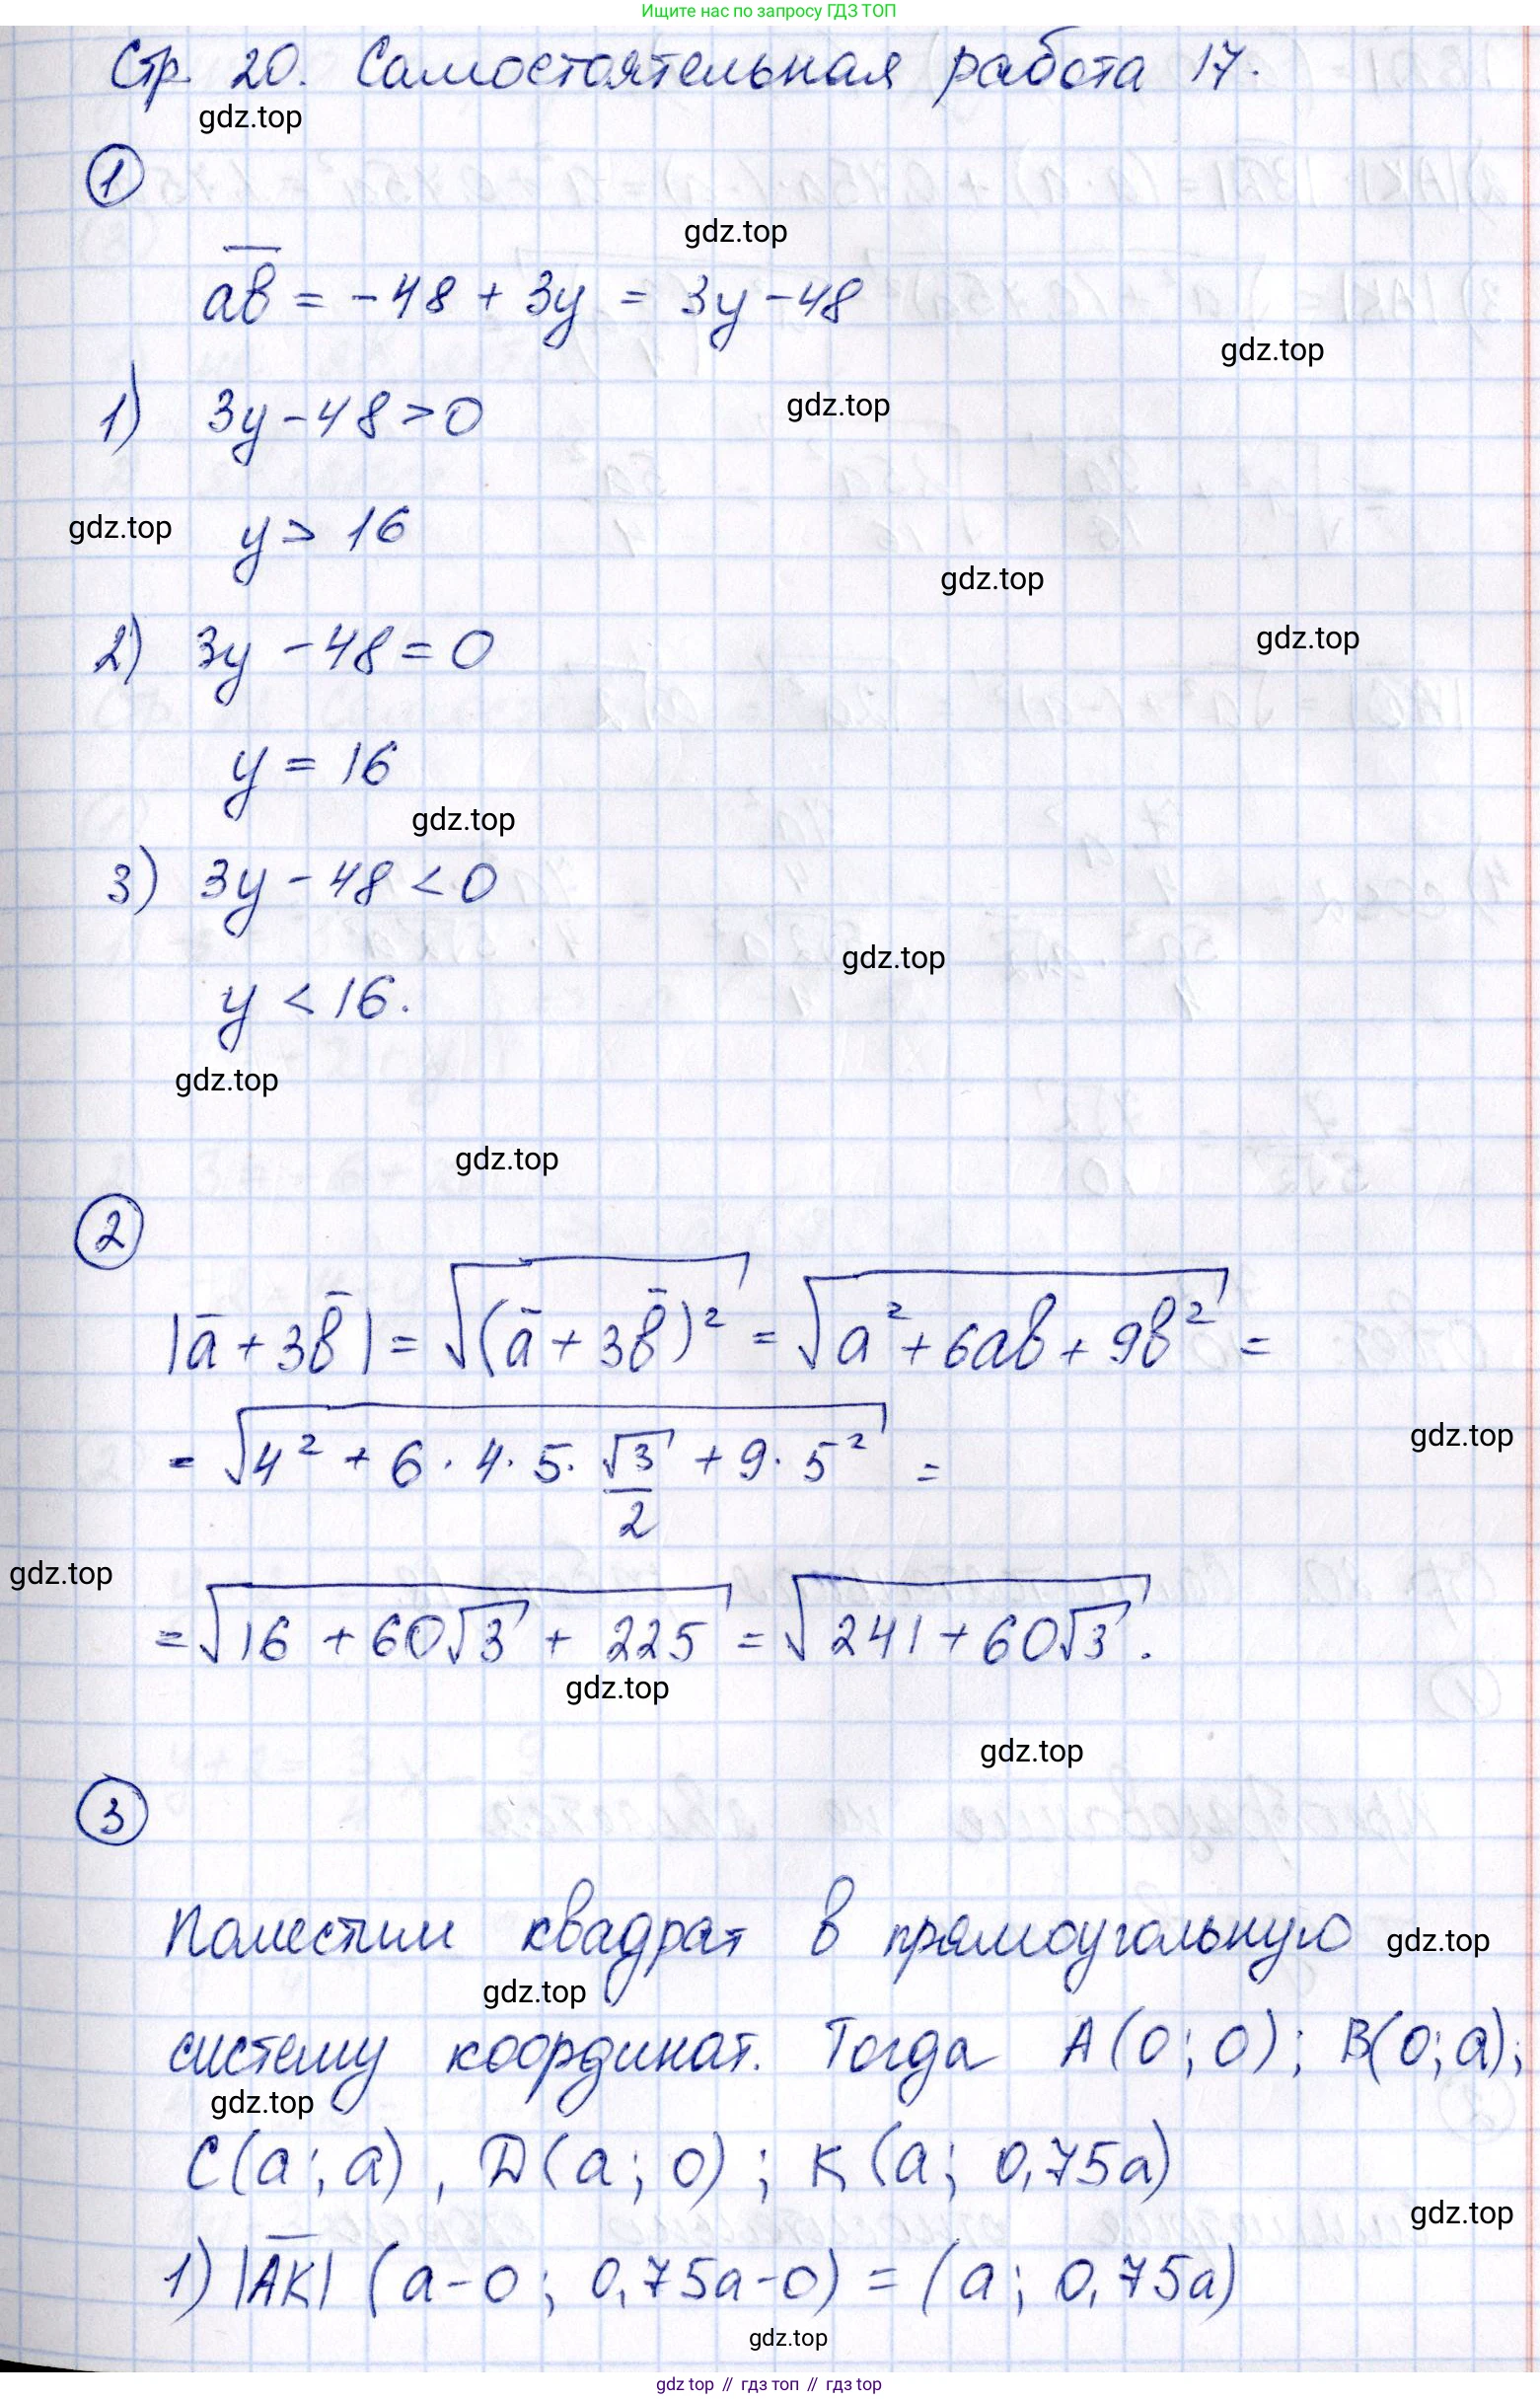 Ищите нас по запросу ГДЗ ТОП
Стр. 20. Самостоятельная работа 17.
gdz.top
①
gdz.top
a̅b̅ = -48 + 3y = 3y - 48
gdz.top
1) 3y - 48 > 0
gdz.top
gdz.top
y > 16
gdz.top
2) 3y - 48 = 0
gdz.top
y = 16
gdz.top
3) 3y - 48 < 0
gdz.top
y < 16.
gdz.top
gdz.top
②
|a̅ + 3b̅| = √((a̅ + 3b̅)²) = √(a² + 6ab + 9b²) =
= √(4² + 6 · 4 · 5 · √3/2 + 9 · 5²) =
gdz.top
gdz.top
= √(16 + 60√3 + 225) = √(241 + 60√3).
gdz.top
gdz.top
③
Поместим квадрат в прямоугольную
gdz.top
gdz.top
систему координат. Тогда A(0; 0); B(0; a);
gdz.top
C(a; a), D(a; 0); K(a; 0,75a)
gdz.top
1) |A̅K̅| (a-0; 0,75a-0) = (a; 0,75a)
gdz.top
gdz top // гдз топ // гдз top